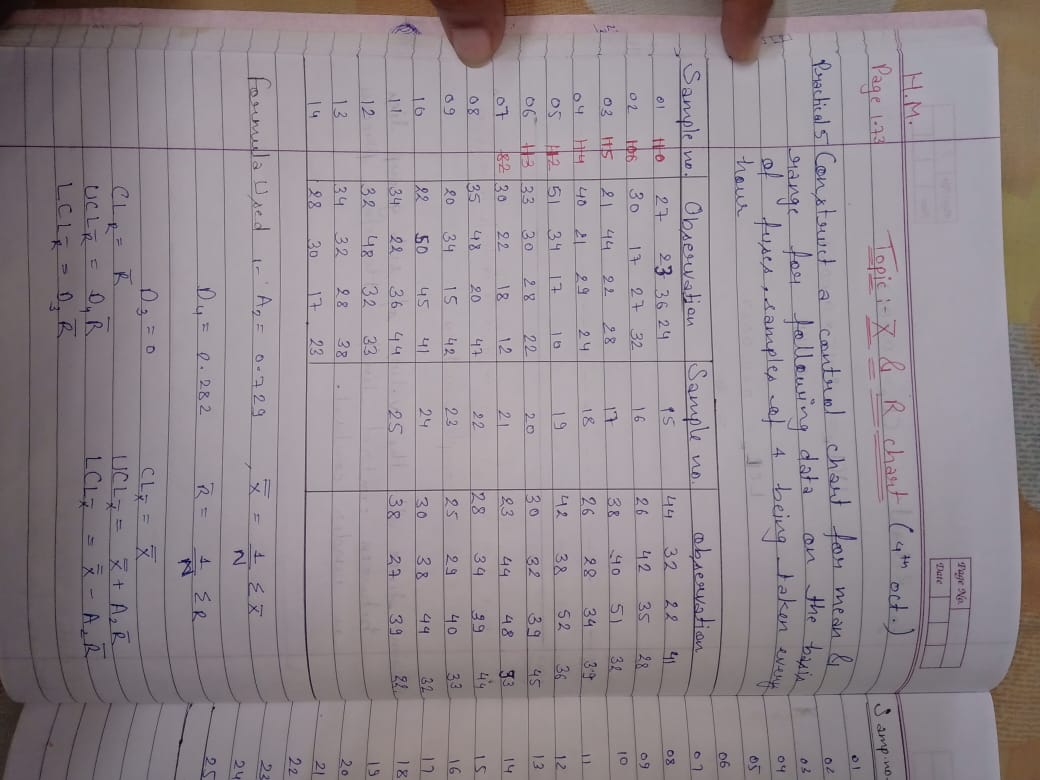 Page No.
Date
H.M.
Page 1.73
Topic :- X̄ & R chart (4th oct.)
Practical 5 Construct a control chart for mean &
range for following data on the basis
of fuses, samples of 4 being taken every
hour
Sample no. Observation Sample no. observation
01 110 27 23 36 24 15 44 32 22 41
02 106 30 17 27 32 16 26 42 35 28
03 115 21 44 22 28 17 38 40 51 32
04 114 40 21 29 24 18 26 28 34 39
05 112 51 34 17 10 19 42 38 52 36
06 113 33 30 28 22 20 30 32 39 45
07 82 30 22 18 12 21 23 44 48 33
08 35 48 20 47 22 28 34 39 44
09 20 34 15 42 23 25 29 40 33
10 22 50 45 41 24 30 38 44 32
11 34 22 36 44 25 38 27 39 22
12 32 48 32 33
13 34 32 28 38
14 28 30 17 23
formula Used :- A₂ = 0.729 , X̿ = 1/N ΣX̄
D₄ = 2.282 R̄ = 1/N ΣR
D₃ = 0 CLx̄ = X̿
CL_R = R̄ UCLx̄ = X̿ + A₂R̄
UCL_R = D₄R̄ LCLx̄ = X̿ - A₂R̄
LCL_R = D₃R̄
Samp. no.
01
02
03
04
05
06
07
08
09
10
11
12
13
14
15
16
17
18
19
20
21
22
23
24
25